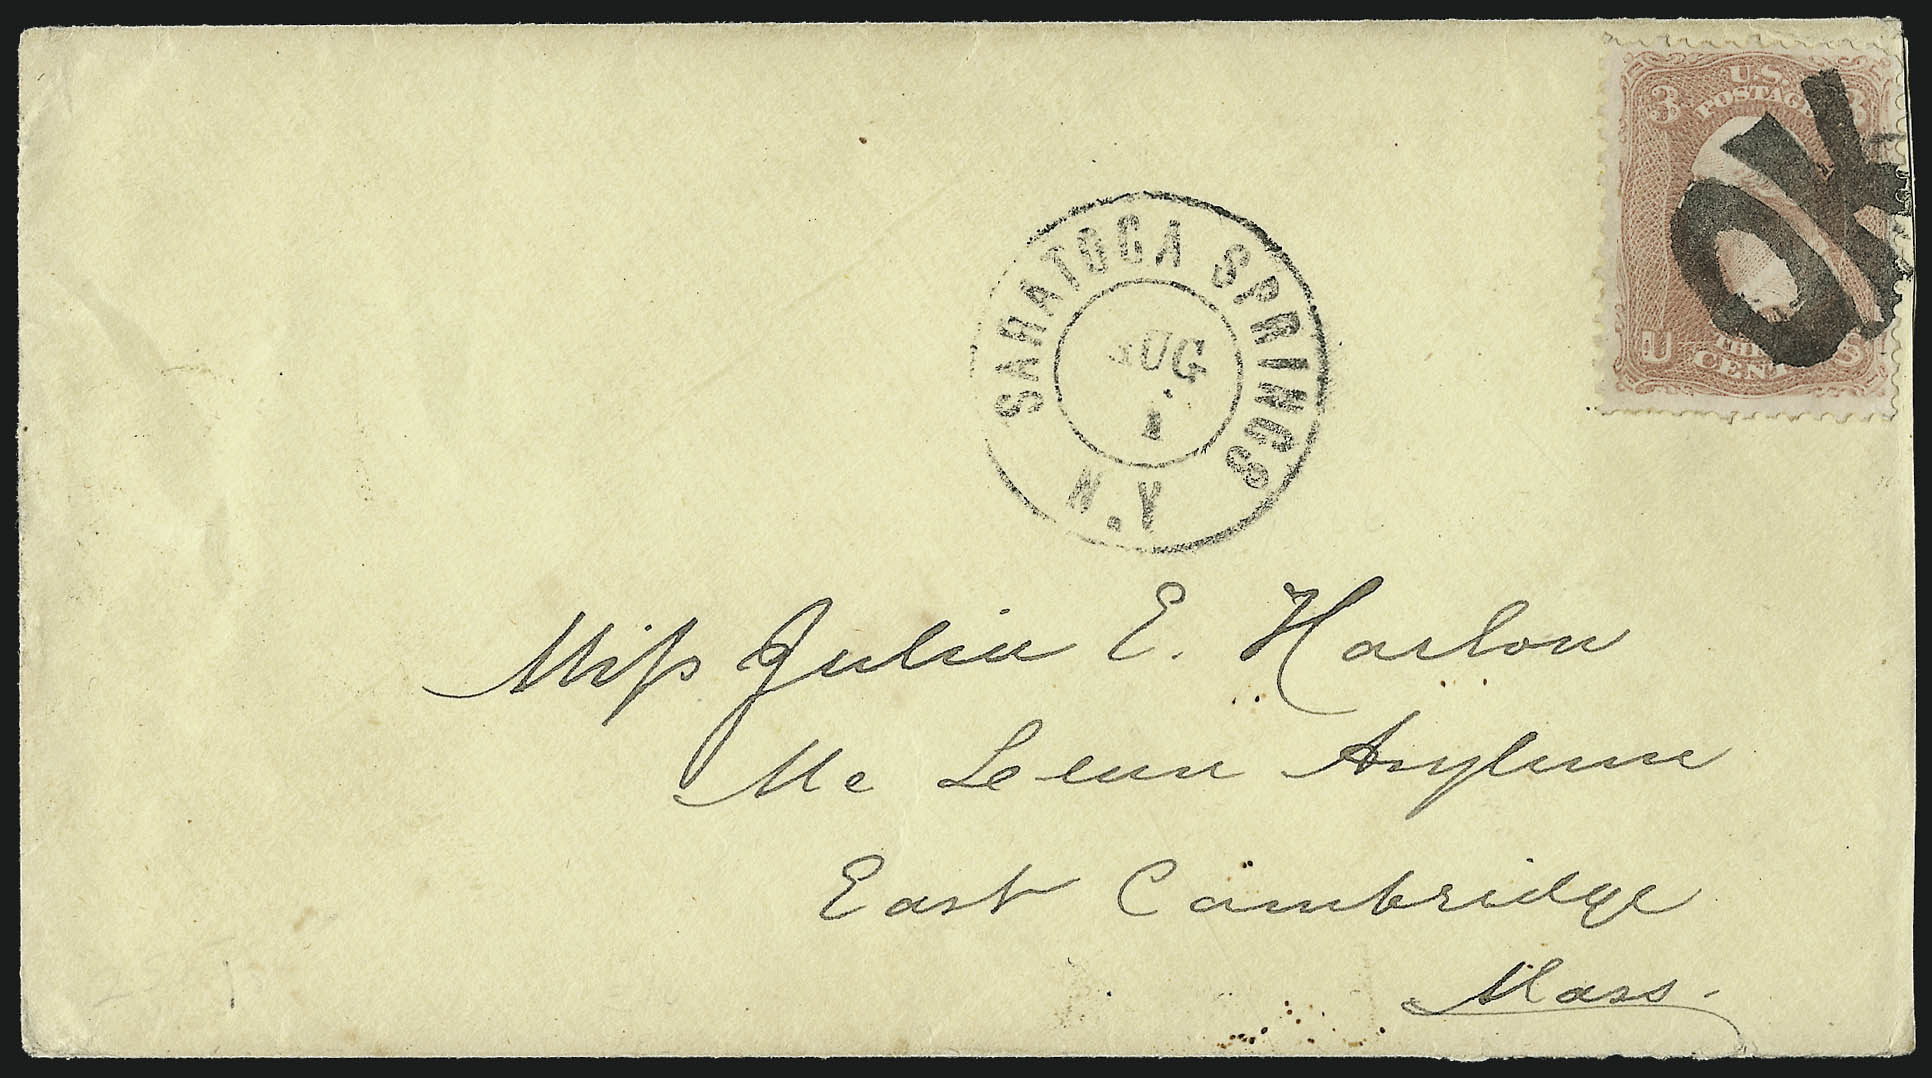 U.S.
POSTAGE
3 3
OK
U S
THREE
CENTS
SARATOGA SPRINGS
AUG
1
N.Y
Miss Julia E. Harlon
Mc Lean Asylum
East Cambridge
Mass.